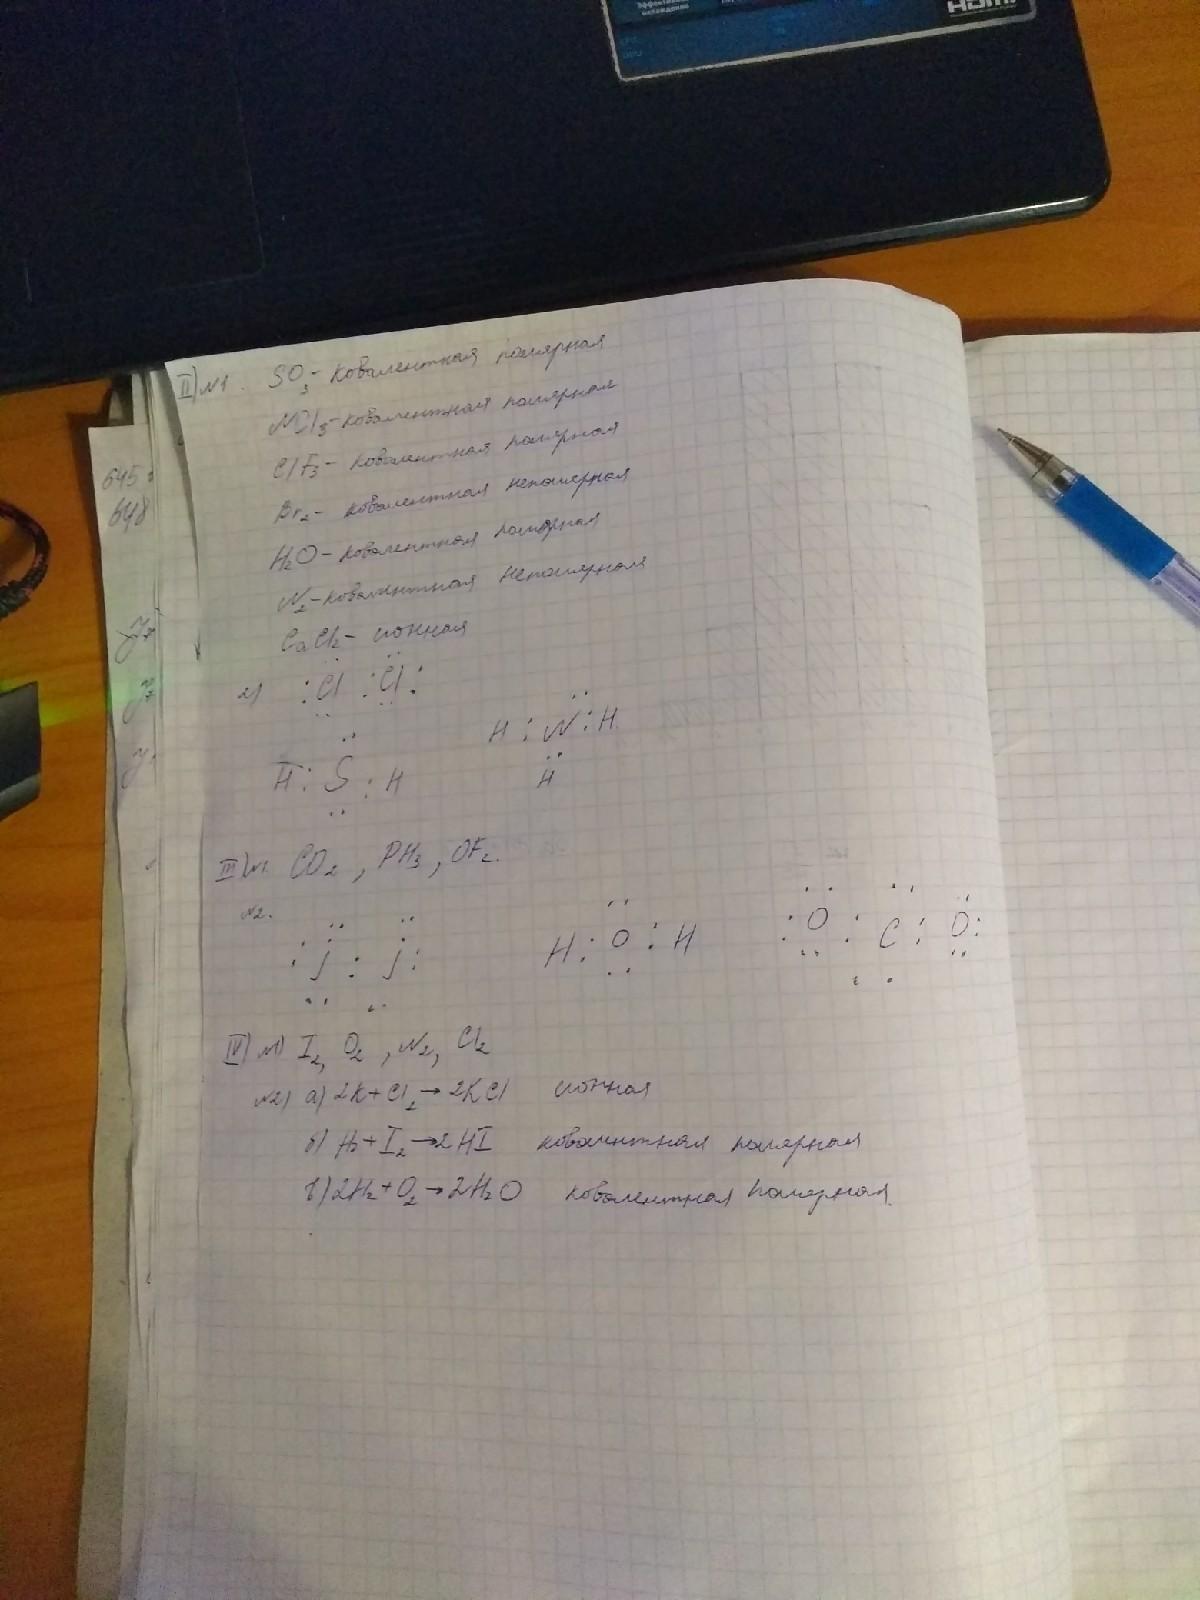 HDMI
645
648
II) N1. SO3 - ковалентная полярная
NCl3 - ковалентная полярная
ClF3 - ковалентная полярная
Br2 - ковалентная неполярная
H2O - ковалентная полярная
N2 - ковалентная неполярная
CaCl2 - ионная
2) :Cl :Cl:
H : N : H
H
H : S : H
III) N1. CO2, PH3, OF2.
N2.
J : J :
H : O : H
: O : C : O :
IV) N1) I2, O2, N2, Cl2
N2) а) 2K + Cl2 → 2KCl ионная
б) H2 + I2 → 2HI ковалентная полярная
в) 2H2 + O2 → 2H2O ковалентная полярная.